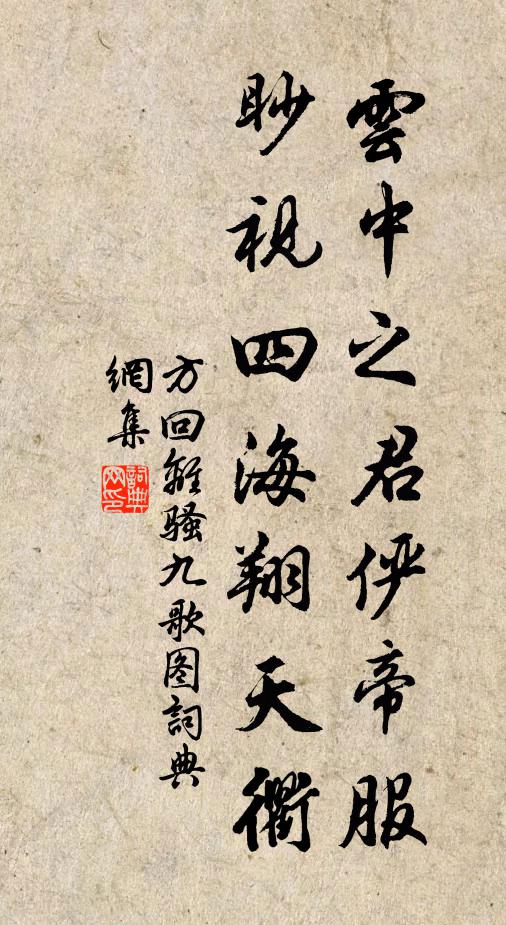 雲中之君侔帝服
眇視四海翔天衢
方回離骚九歌图詞典
網集
詞典網印